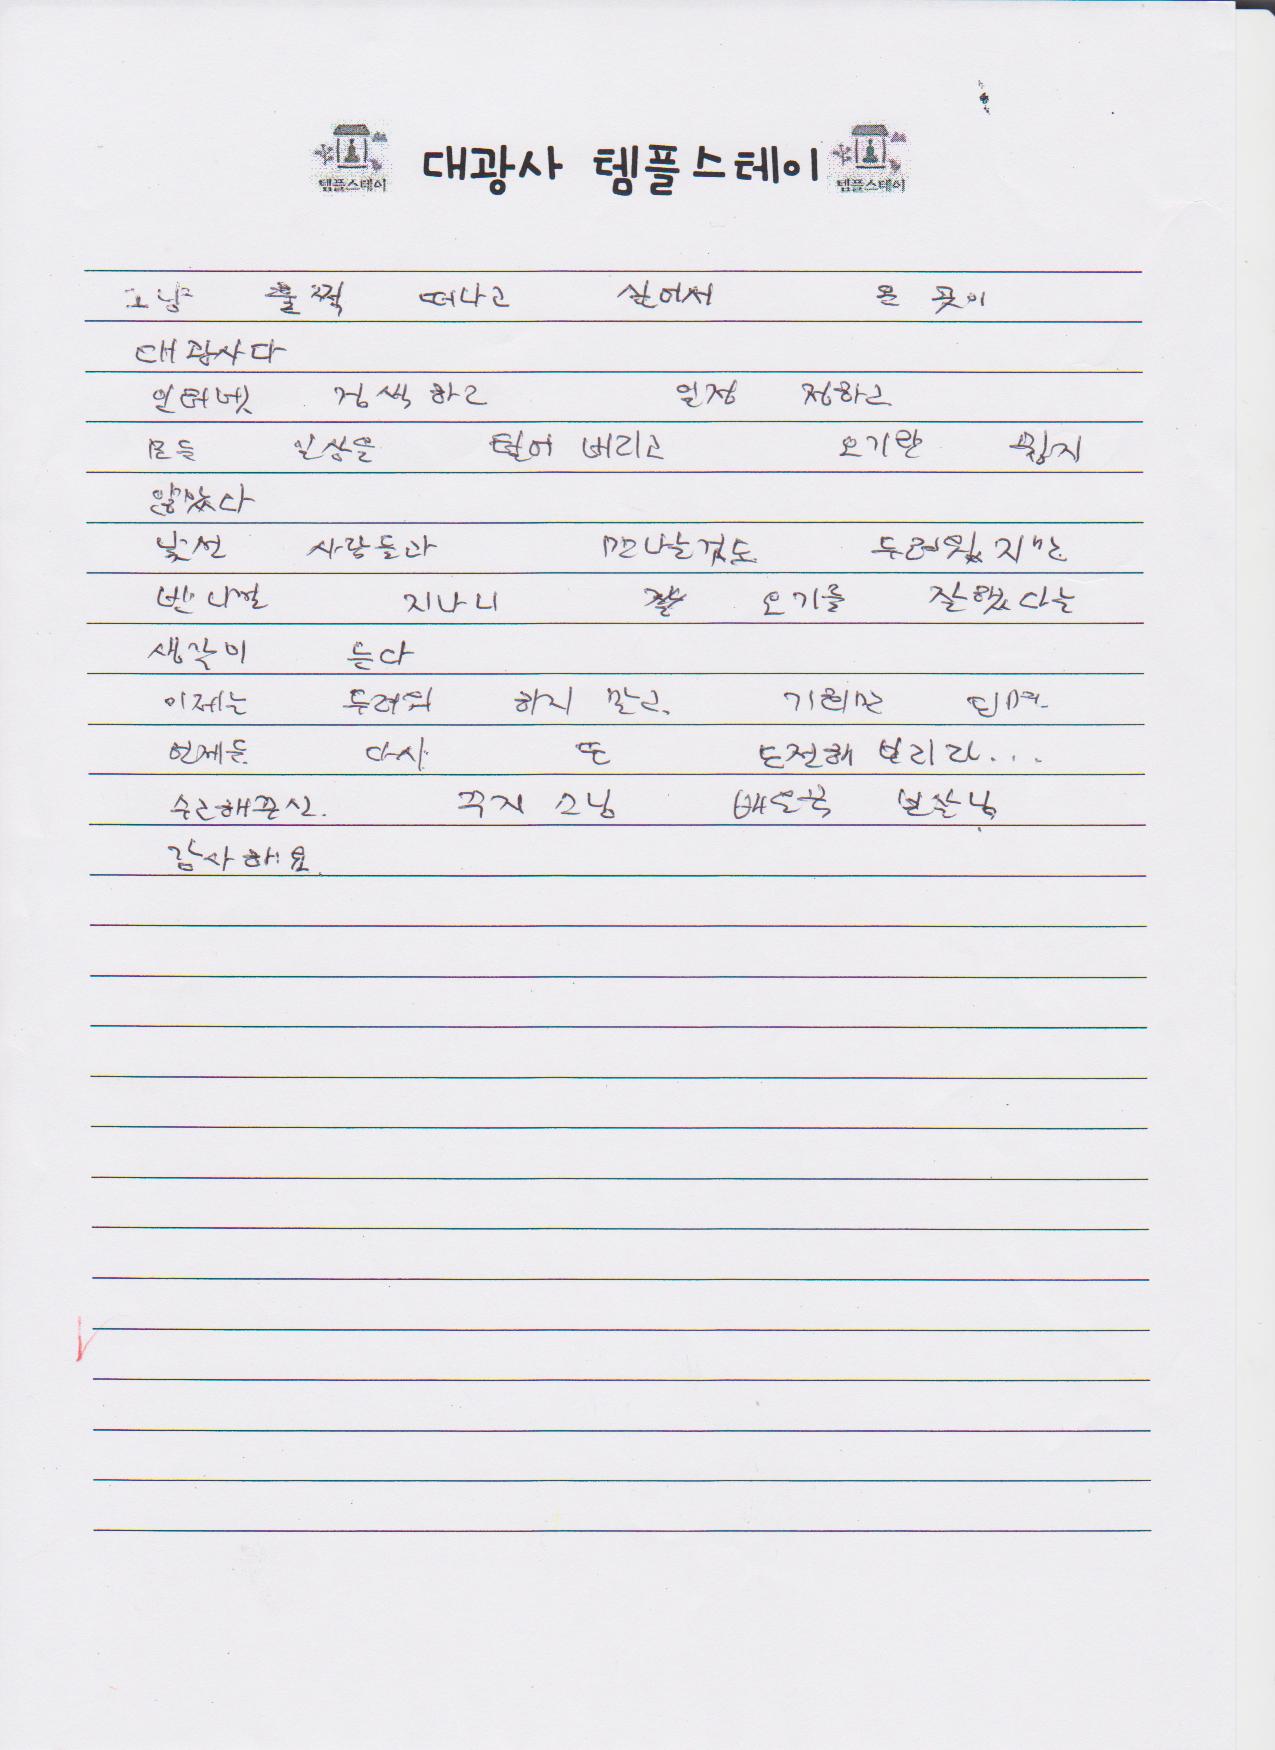 템플스테이 대광사 템플스테이 템플스테이
그냥 훌쩍 떠나고 싶어서 온 곳이
대광사다
인터넷 검색하고 일정 정하고
모든 일상을 털어 버리고 오기란 쉽지
않았다
낯선 사람들과 만나는것도 두려웠지만
반나절 지나니 오기를 잘했다는
생각이 든다
이제는 두려워 하지 말고 기회만 되면
언제든 다시 또 도전해 보리라...
수고해주신. 주지 스님 보살님
감사해요.